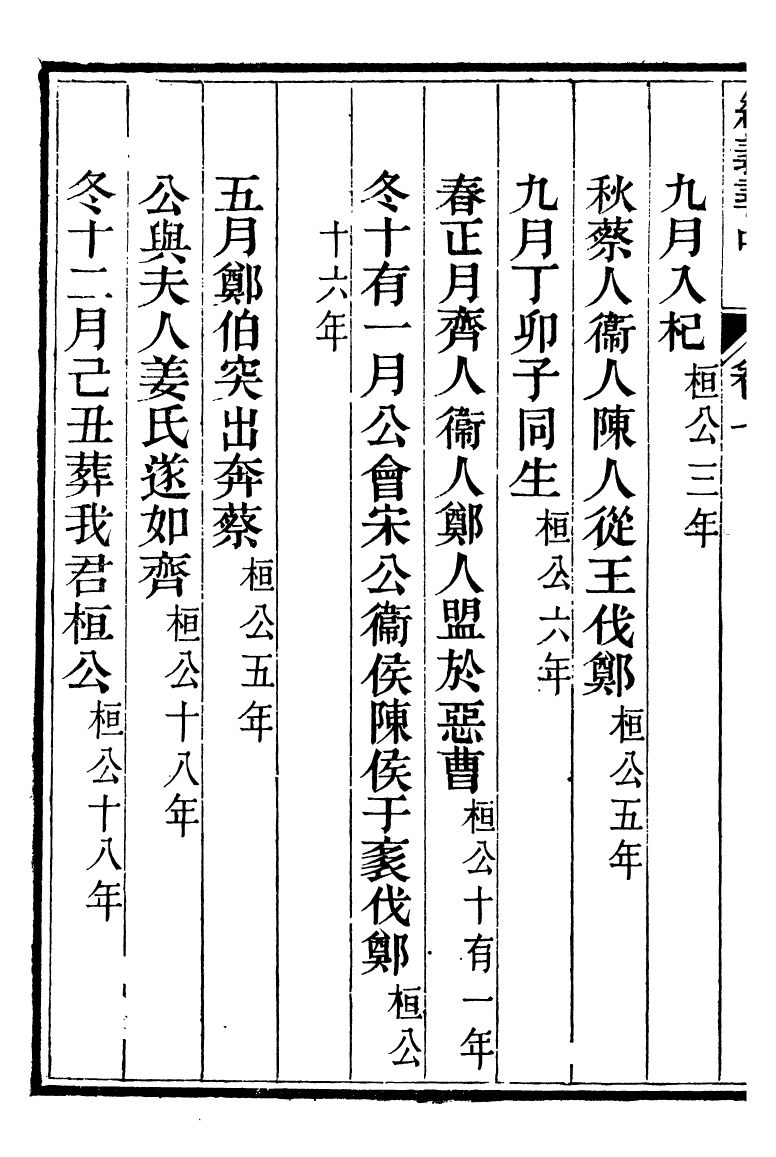 九月入杞桓公三年
秋蔡人衞人陳人從王伐鄭桓公五年
九月丁卯子同生桓公六年
春正月齊人衞人鄭人盟於惡曹桓公十有一年
冬十有一月公會宋公衞侯陳侯于袲伐鄭桓公
十六年
五月鄭伯突出奔蔡桓公五年
公與夫人姜氏遂如齊桓公十八年
冬十二月己丑葬我君桓公桓公十八年